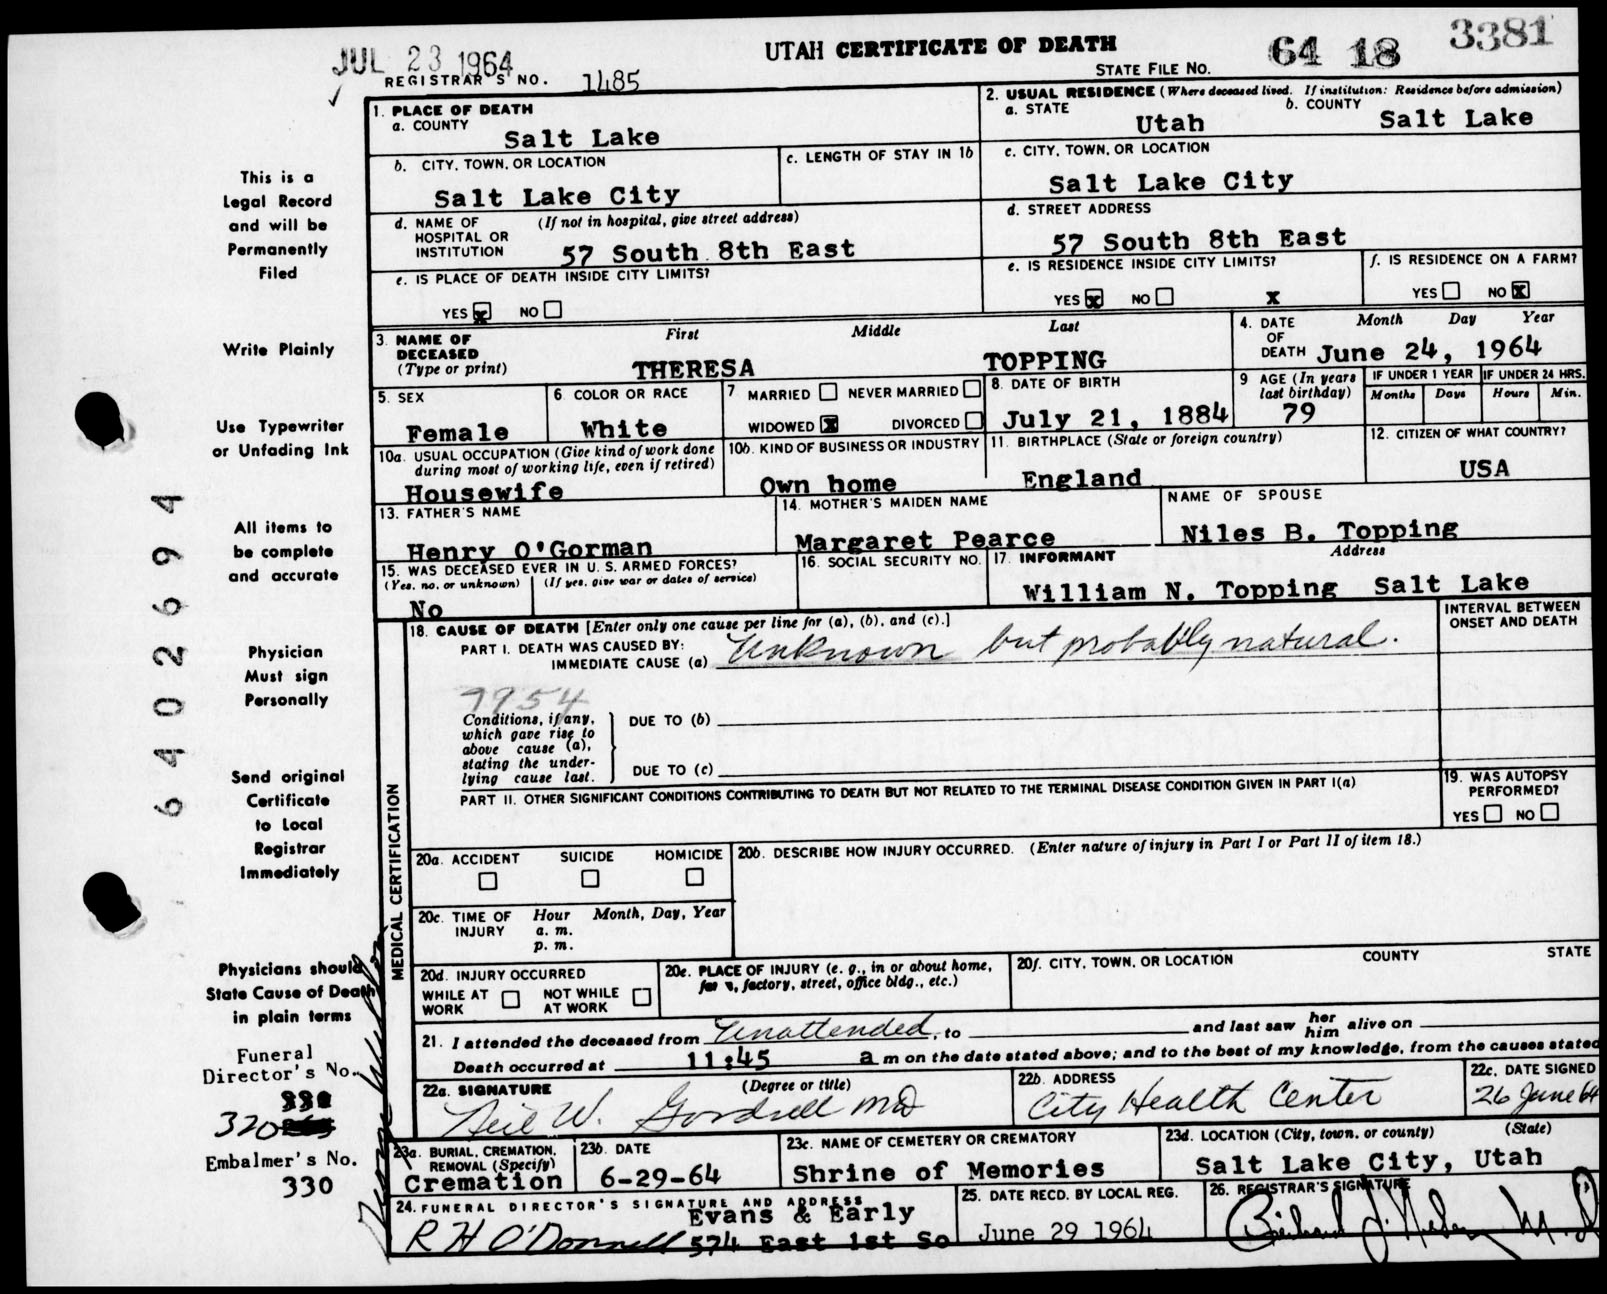 JUL 23 1964
UTAH CERTIFICATE OF DEATH
64 18 3381
REGISTRAR'S NO. 1485
STATE FILE NO.
1. PLACE OF DEATH
a. COUNTY
Salt Lake
2. USUAL RESIDENCE (Where deceased lived. If institution: Residence before admission)
a. STATE Utah b. COUNTY Salt Lake
b. CITY, TOWN, OR LOCATION
Salt Lake City
c. LENGTH OF STAY IN 1b
c. CITY, TOWN, OR LOCATION
Salt Lake City
d. NAME OF HOSPITAL OR INSTITUTION (If not in hospital, give street address)
57 South 8th East
d. STREET ADDRESS
57 South 8th East
e. IS PLACE OF DEATH INSIDE CITY LIMITS?
YES x NO
e. IS RESIDENCE INSIDE CITY LIMITS?
YES x NO x
f. IS RESIDENCE ON A FARM?
YES NO x
3. NAME OF DECEASED (Type or print)
First Middle Last
THERESA TOPPING
4. DATE OF DEATH Month Day Year
June 24, 1964
5. SEX
Female
6. COLOR OR RACE
White
7 MARRIED NEVER MARRIED
WIDOWED x DIVORCED
8. DATE OF BIRTH
July 21, 1884
9 AGE (In years last birthday)
79
IF UNDER 1 YEAR
Months Days
IF UNDER 24 HRS.
Hours Min.
10a. USUAL OCCUPATION (Give kind of work done during most of working life, even if retired)
Housewife
10b. KIND OF BUSINESS OR INDUSTRY
Own home
11. BIRTHPLACE (State or foreign country)
England
12. CITIZEN OF WHAT COUNTRY?
USA
13. FATHER'S NAME
Henry O'Gorman
14. MOTHER'S MAIDEN NAME
Margaret Pearce
NAME OF SPOUSE
Niles B. Topping
15. WAS DECEASED EVER IN U. S. ARMED FORCES?
(Yes, no, or unknown) (If yes, give war or dates of service)
No
16. SOCIAL SECURITY NO.
17. INFORMANT Address
William N. Topping Salt Lake
MEDICAL CERTIFICATION
18. CAUSE OF DEATH [Enter only one cause per line for (a), (b), and (c).]
PART I. DEATH WAS CAUSED BY:
IMMEDIATE CAUSE (a) Unknown but probably natural.
INTERVAL BETWEEN ONSET AND DEATH
7954
Conditions, if any, which gave rise to above cause (a), stating the underlying cause last.
DUE TO (b)
DUE TO (c)
PART II. OTHER SIGNIFICANT CONDITIONS CONTRIBUTING TO DEATH BUT NOT RELATED TO THE TERMINAL DISEASE CONDITION GIVEN IN PART I(a)
19. WAS AUTOPSY PERFORMED?
YES NO
20a. ACCIDENT SUICIDE HOMICIDE
20b. DESCRIBE HOW INJURY OCCURRED. (Enter nature of injury in Part I or Part II of item 18.)
20c. TIME OF INJURY Hour Month, Day, Year
a. m.
p. m.
20d. INJURY OCCURRED
WHILE AT WORK NOT WHILE AT WORK
20e. PLACE OF INJURY (e. g., in or about home, factory, street, office bldg., etc.)
20f. CITY, TOWN, OR LOCATION COUNTY STATE
21. I attended the deceased from Unattended, to and last saw her him alive on
Death occurred at 11:45 a m on the date stated above; and to the best of my knowledge, from the causes stated
22a. SIGNATURE (Degree or title)
Neil W. MD
22b. ADDRESS
City Health Center
22c. DATE SIGNED
26 June 64
23a. BURIAL, CREMATION, REMOVAL (Specify)
Cremation
23b. DATE
6-29-64
23c. NAME OF CEMETERY OR CREMATORY
Shrine of Memories
23d. LOCATION (City, town, or county) (State)
Salt Lake City, Utah
24. FUNERAL DIRECTOR'S SIGNATURE AND ADDRESS
Evans & Early
R H O'Donnell 574 East 1st So
25. DATE RECD. BY LOCAL REG.
June 29 1964
26. REGISTRAR'S SIGNATURE
This is a
Legal Record
and will be
Permanently
Filed
Write Plainly
Use Typewriter
or Unfading Ink
All items to
be complete
and accurate
Physician
Must sign
Personally
Send original
Certificate
to Local
Registrar
Immediately
Physicians should
State Cause of Death
in plain terms
Funeral
Director's No.
320
Embalmer's No.
330
6402694